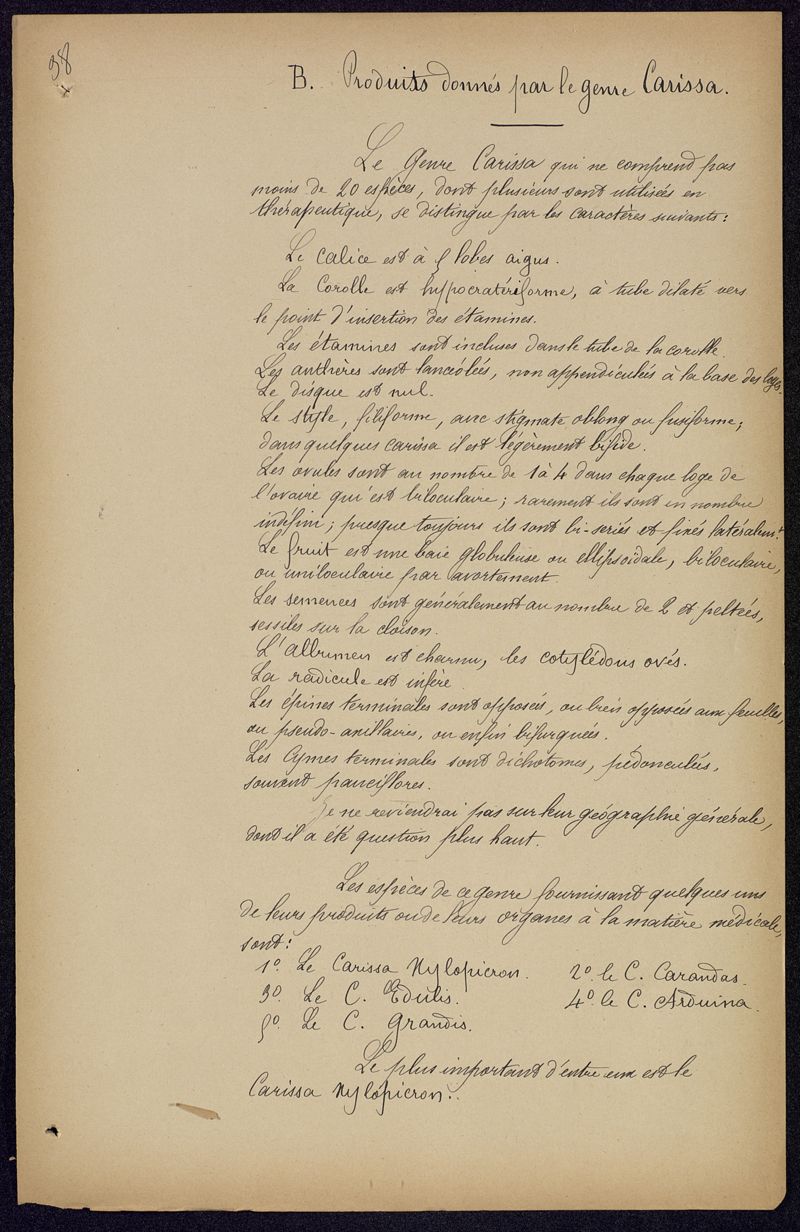 38
B. Produits donnés par le genre Carissa.
Le Genre Carissa qui ne comprend pas
moins de 20 espèces, dont plusieurs sont utilisées en
thérapeutique, se distingue par les caractères suivants :
Le calice est à 5 lobes aigus.
La Corolle est hypocratériforme, à tube dilaté vers
le point d'insertion des étamines.
Les étamines sont incluses dans le tube de la corolle.
Les anthères sont lancéolées, non appendiculées à la base des loges.
Le disque est nul.
Le style, filiforme, avec stigmate oblong ou fusiforme ;
dans quelques carissa il est légèrement bifide.
Les ovules sont au nombre de 1 à 4 dans chaque loge de
l'ovaire qui est biloculaire ; rarement ils sont en nombre
indéfini ; presque toujours ils sont bi-seriés et fixés latéralemt.
Le fruit est une baie globuleuse ou ellipsoïdale, biloculaire,
ou uniloculaire par avortement.
Les semences sont généralement au nombre de 2 et peltées,
sessiles sur la cloison.
L'albumen est charnu, les cotylédons ovés.
La radicule est infère
Les épines terminales sont opposées, ou bien opposées aux feuilles,
ou pseudo-axillaires, ou enfin bifurquées.
Les Cymes terminales sont dichotomes, pédonculées,
souvent pauciflores.
Je ne reviendrai pas sur leur géographie générale,
dont il a été question plus haut.
Les espèces de ce genre fournissant quelques uns
de leurs produits ou de leurs organes à la matière médicale,
sont :
1º. Le Carissa Xylopicron. 2º. le C. Carandas.
3º. Le C. Edulis. 4º. le C. Arduina.
5º. Le C. Grandis.
Le plus important d'entre eux est le
Carissa Xylopicron.